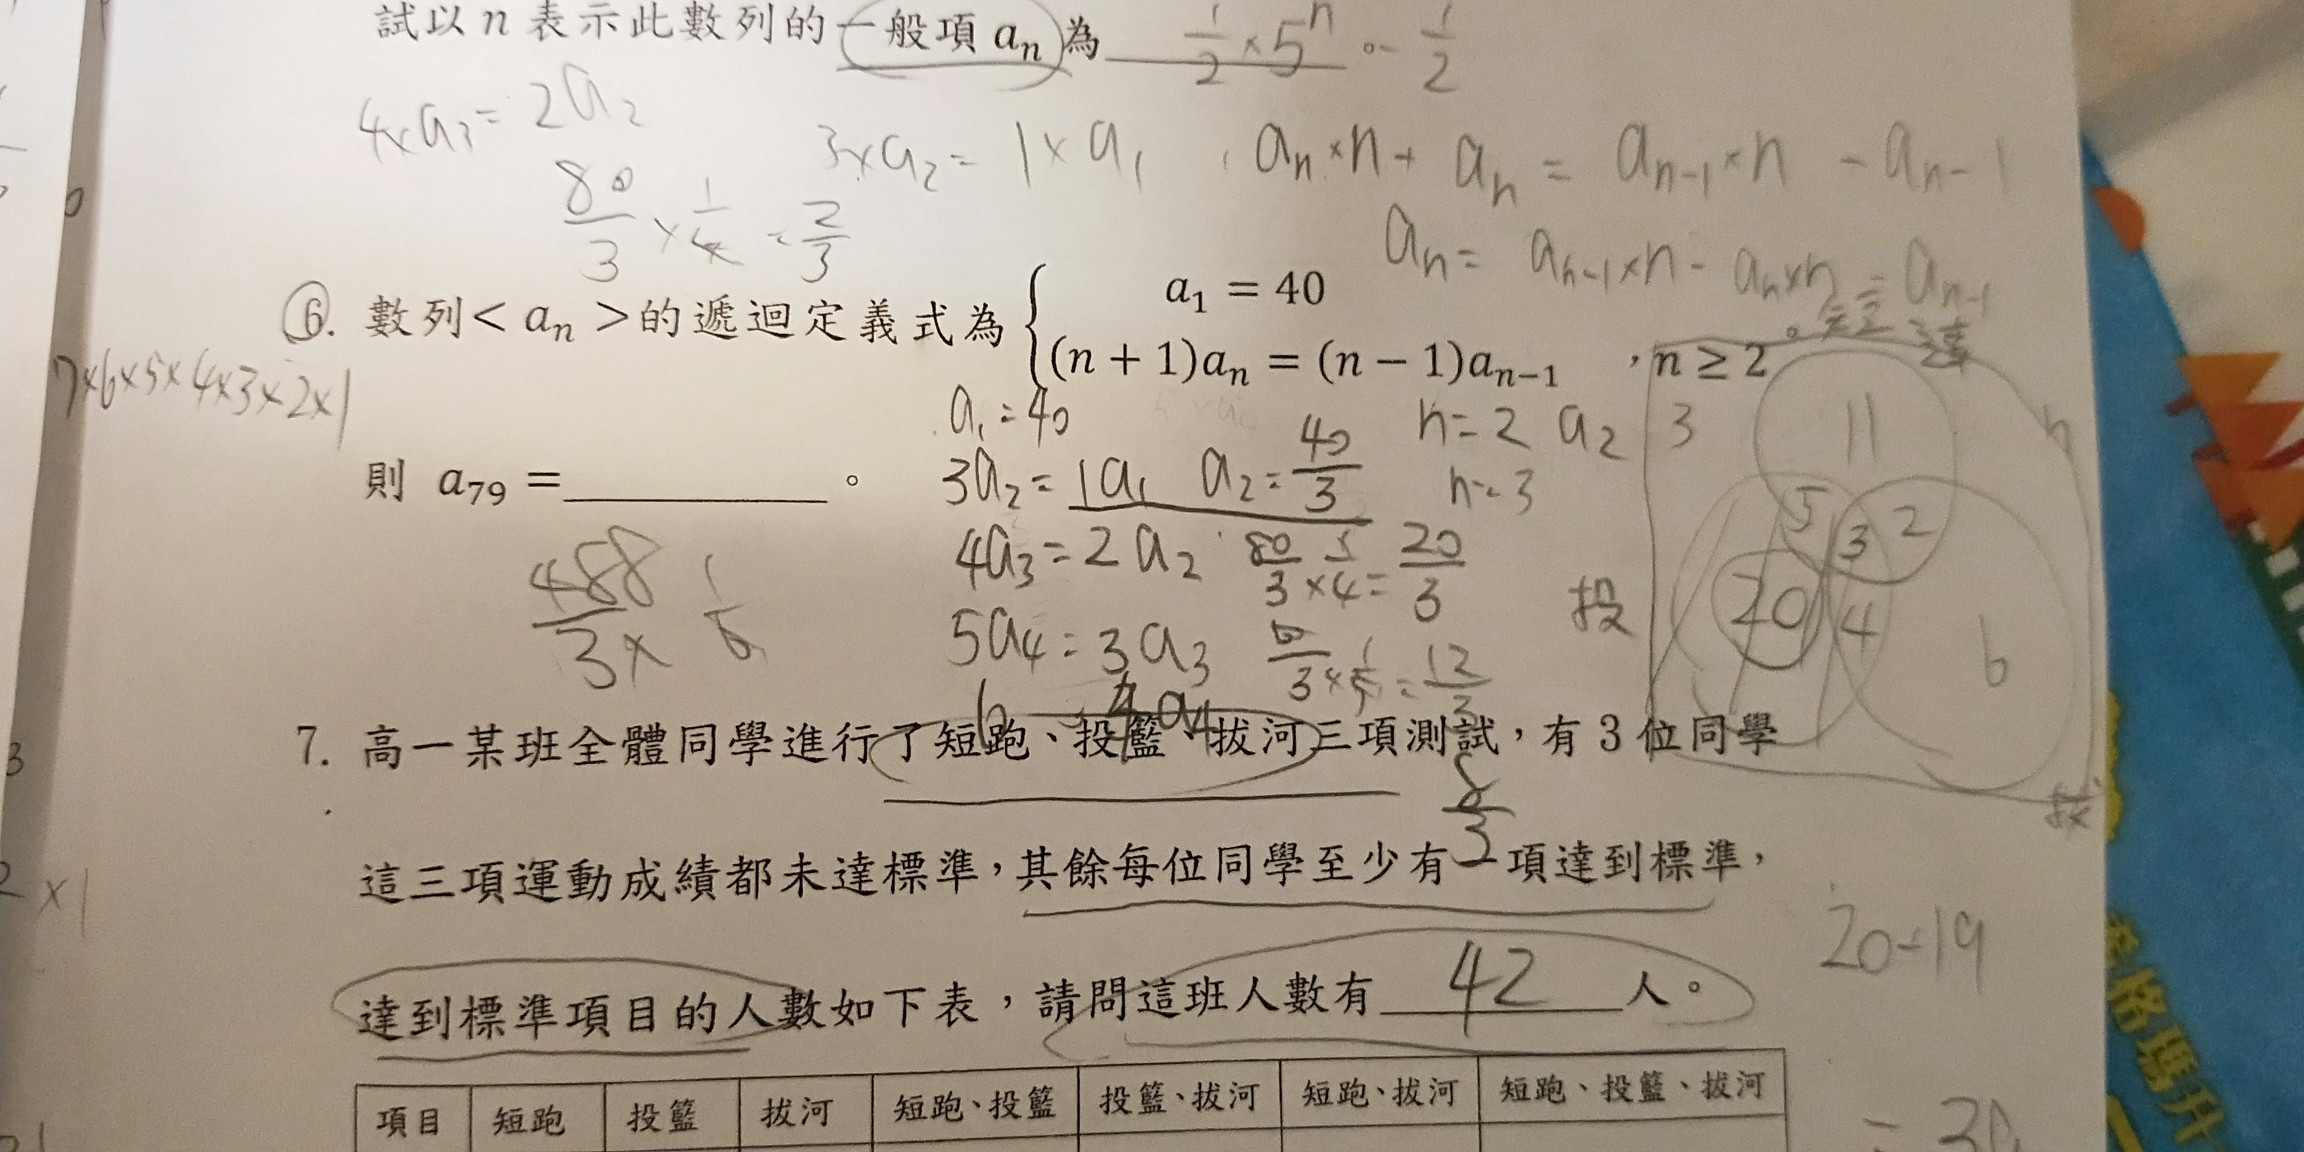 試以 n 表示此數列的一般項 aₙ 為 1/2 × 5ⁿ 。- 1/2
4×a₃ = 2a₂
3×a₂ = 1×a₁ , aₙ×n + aₙ = aₙ₋₁×n - aₙ₋₁
80/3 × 1/4 = 2/3
aₙ = aₙ₋₁×n - aₙ×n = aₙ₋₁
⑥. 數列< aₙ >的遞迴定義式為 { a₁ = 40
(n + 1)aₙ = (n − 1)aₙ₋₁ ,n ≥ 2 。
7×6×5×4×3×2×1
a₁ = 40
n = 2 a₂
3 11
則 a₇₉ =________ 。
3a₂ = 1a₁ a₂ = 40/3
n = 3
5 3 2
4a₃ = 2a₂ 80/3 × 1/4 = 20/3
投 20 4 6
5a₄ = 3a₃
1/5 = 12/3
6 4a₄
7. 高一某班全體同學進行了短跑、投籃、拔河三項測試,有 3 位同學
8/3
這三項運動成績都未達標準,其餘每位同學至少有一項達到標準,
2 × 1
20-19
達到標準項目的人數如下表,請問這班人數有 42 人。
項目 短跑 投籃 拔河 短跑、投籃 投籃、拔河 短跑、拔河 短跑、投籃、拔河